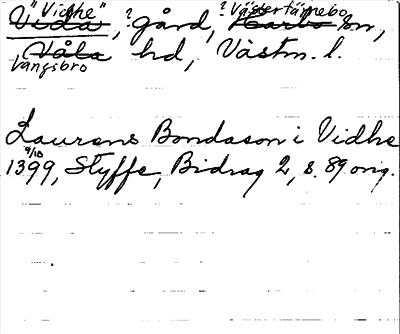 "Vidhe" ? Västertärnebo
Vida, gård, Harbo sn,
Våla hd, Västm. l.
Vangsbro
Laurens Bondason i Vidhe
9/10
1399, Styffe, Bidrag 2, s. 89 orig.